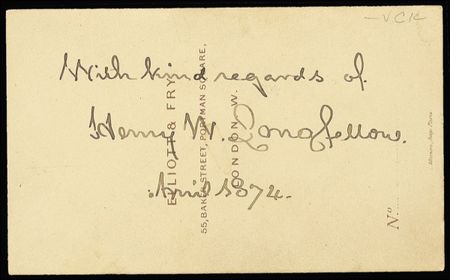 With kind regards of
Henry W. Longfellow.
April 1874.
ELLIOTT & FRY
55, BAKER STREET, PORTMAN SQUARE,
LONDON. W.
No
VCK